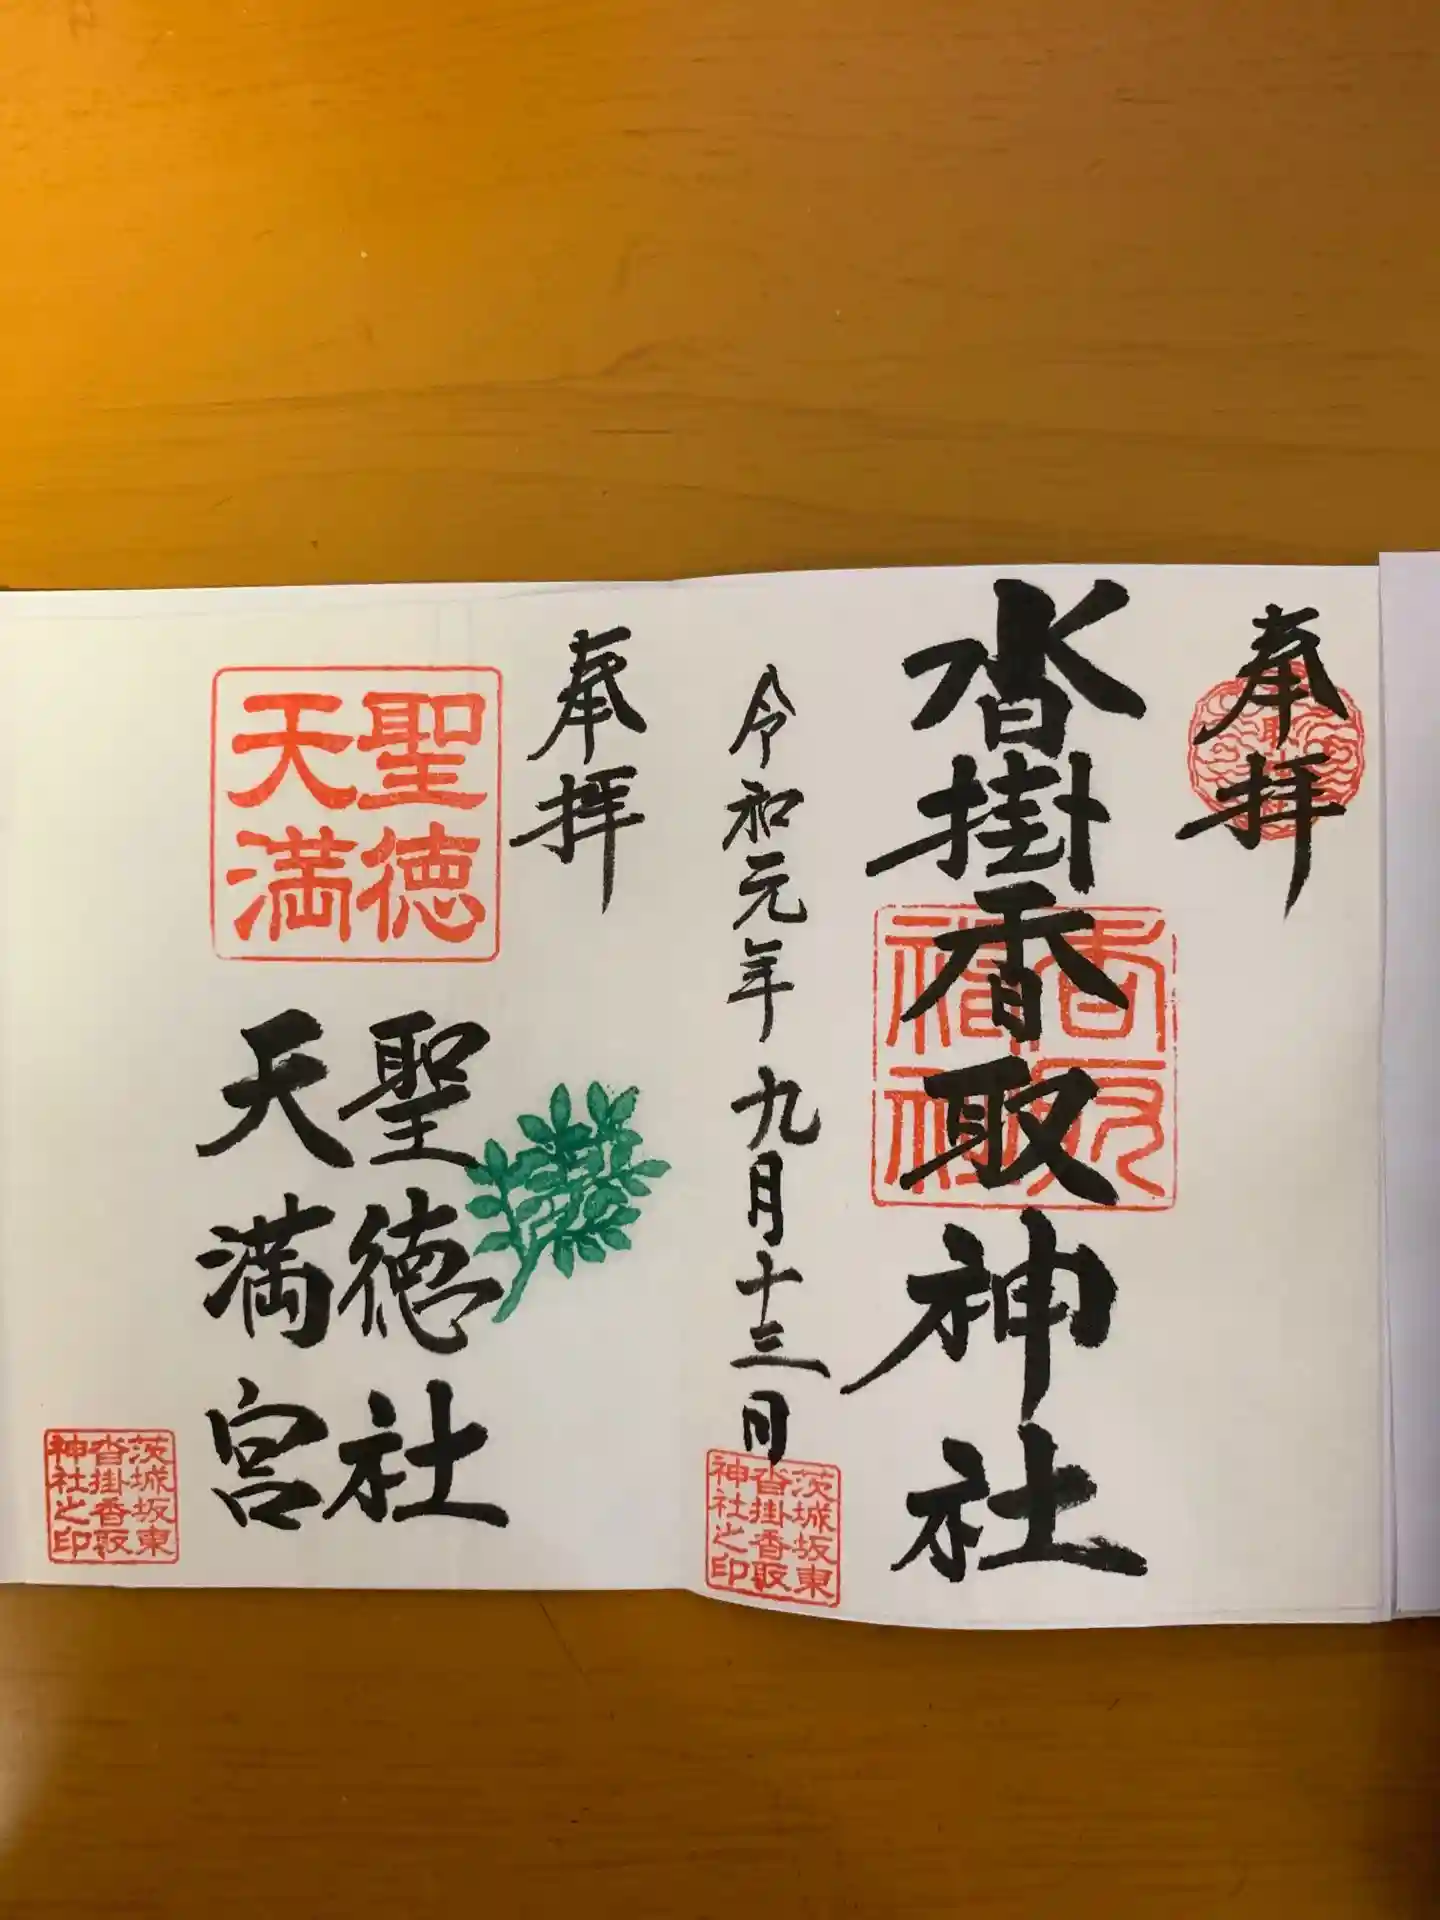 奉拝
沓掛香取神社
令和元年九月十三日
茨城坂東
沓掛香取
神社之印
奉拝
聖徳
天満
聖徳社
天満宮
茨城坂東
沓掛香取
神社之印